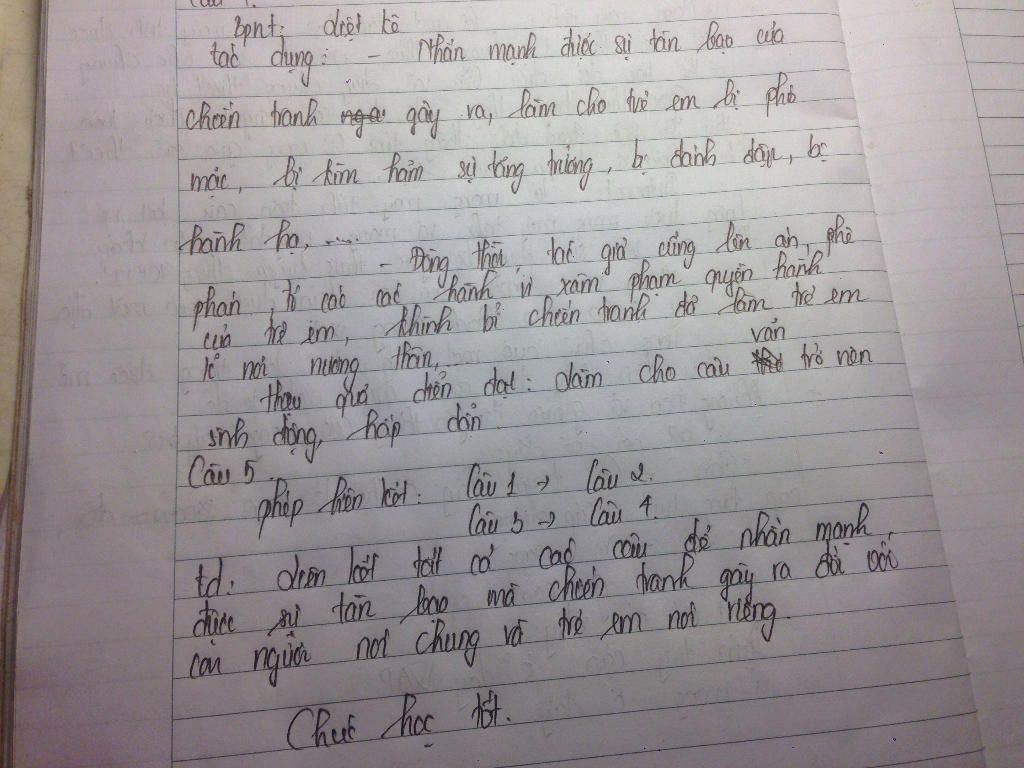 Câu 4.
bpnt: liệt kê
tác dụng: - Nhấn mạnh được sự tàn bạo của
chiến tranh gây ra, làm cho trẻ em bị phá
mác, bị kìm hãm sự tăng trưởng, bị đánh đập, bị
hành hạ, .....
- Đồng thời, tác giả cũng lên án, phê
phán tố cáo các hành vi xâm phạm quyền hành
của trẻ em, khinh bỉ chiến tranh đã làm trẻ em
lẻ nơi nương thân.
diễn đạt: làm cho câu văn trở nên
sinh động, hấp dẫn.
Câu 5.
phép liên kết: Câu 1 → Câu 2.
Câu 3 → Câu 4.
td: liên kết tất cả các câu để nhấn mạnh
được sự tàn bạo mà chiến tranh gây ra đối với
con người nói chung và trẻ em nói riêng.
Chúc học tốt.